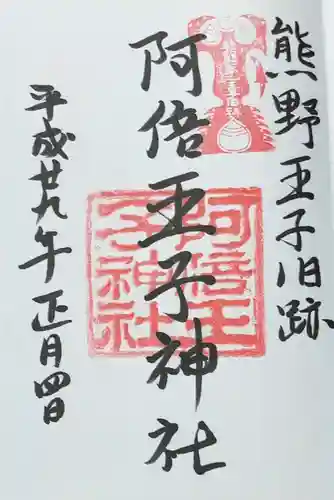 熊野王子旧跡
阿倍王子神社
阿倍王子神社
平成廿九年正月四日